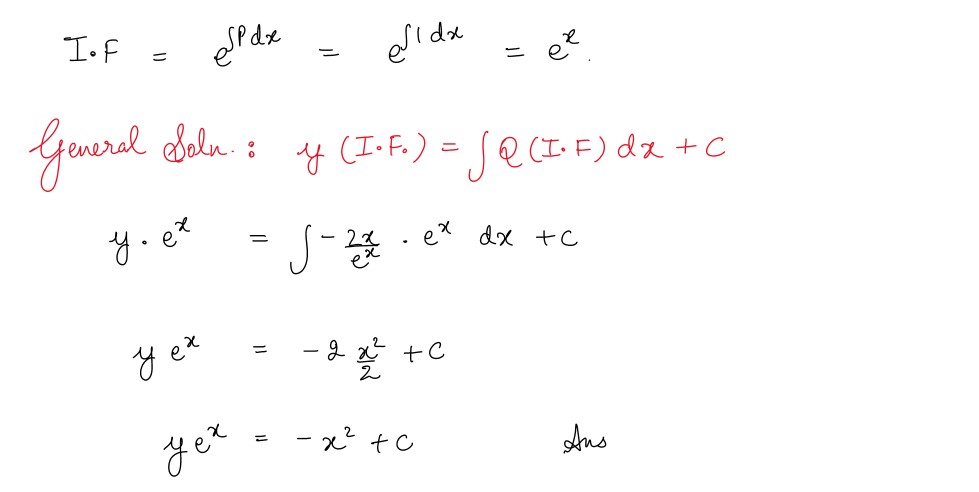 I.F = e^∫Pdx = e^∫1dx = e^x.
General Soln. : y (I.F.) = ∫Q (I.F) dx + C
y . e^x = ∫ - 2x/e^x . e^x dx + C
y e^x = - 2 x²/2 + C
y e^x = - x² + C Ans